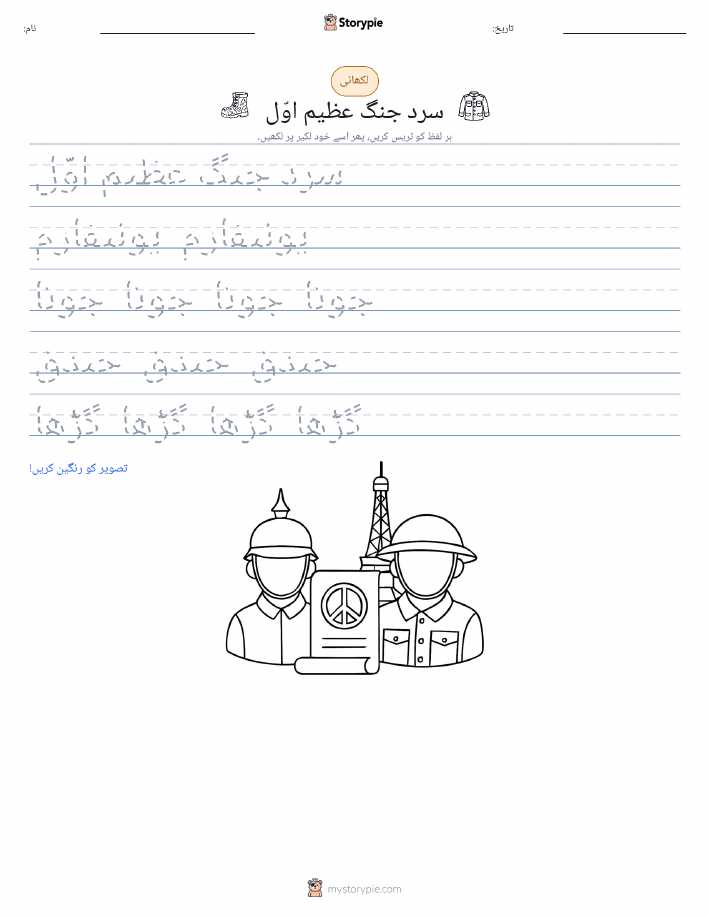 نام:
Storypie
تاریخ:
لکھائی
سرد جنگ عظیم اوّل
ہر لفظ کو ٹریس کریں، پھر اسے خود لکیر پر لکھیں۔
سرد جنگ عظیم اوّل
یونیفارم یونیفارم
جوتا جوتا جوتا جوتا
خندق خندق خندق
گڑھا گڑھا گڑھا گڑھا
تصویر کو رنگین کریں!
mystorypie.com